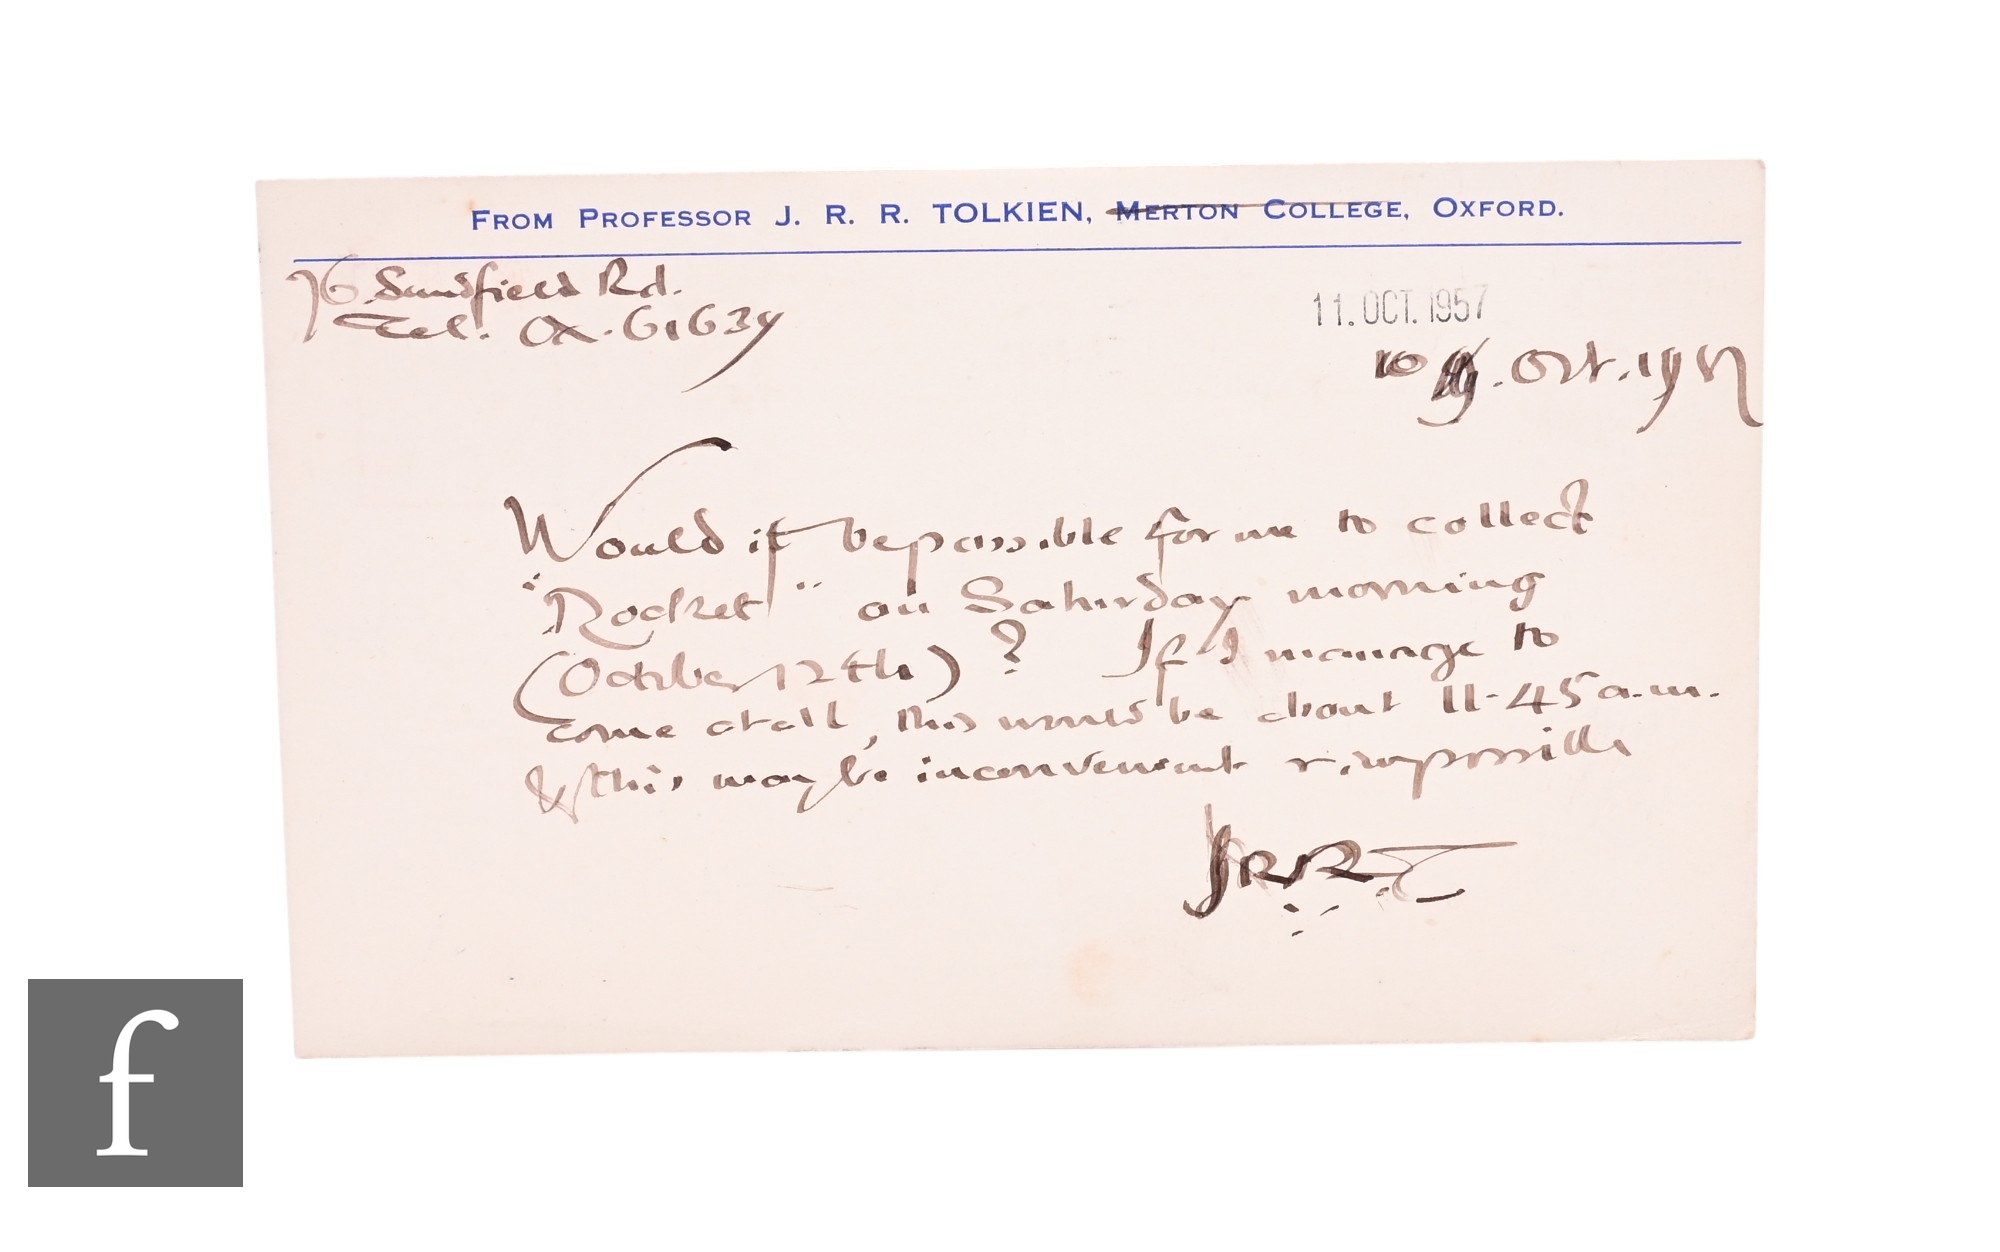 FROM PROFESSOR J. R. R. TOLKIEN, MERTON COLLEGE, OXFORD.
76 Sandfield Rd.
Tel. Ox. 61639
11. OCT. 1957
10 . Oct. 1957
Would it be possible for me to collect
"Rocket" on Saturday morning
(October 12th)? If I manage to
come at all, this would be about 11-45 a.m.
& this may be inconvenient or impossible
JRRT
f